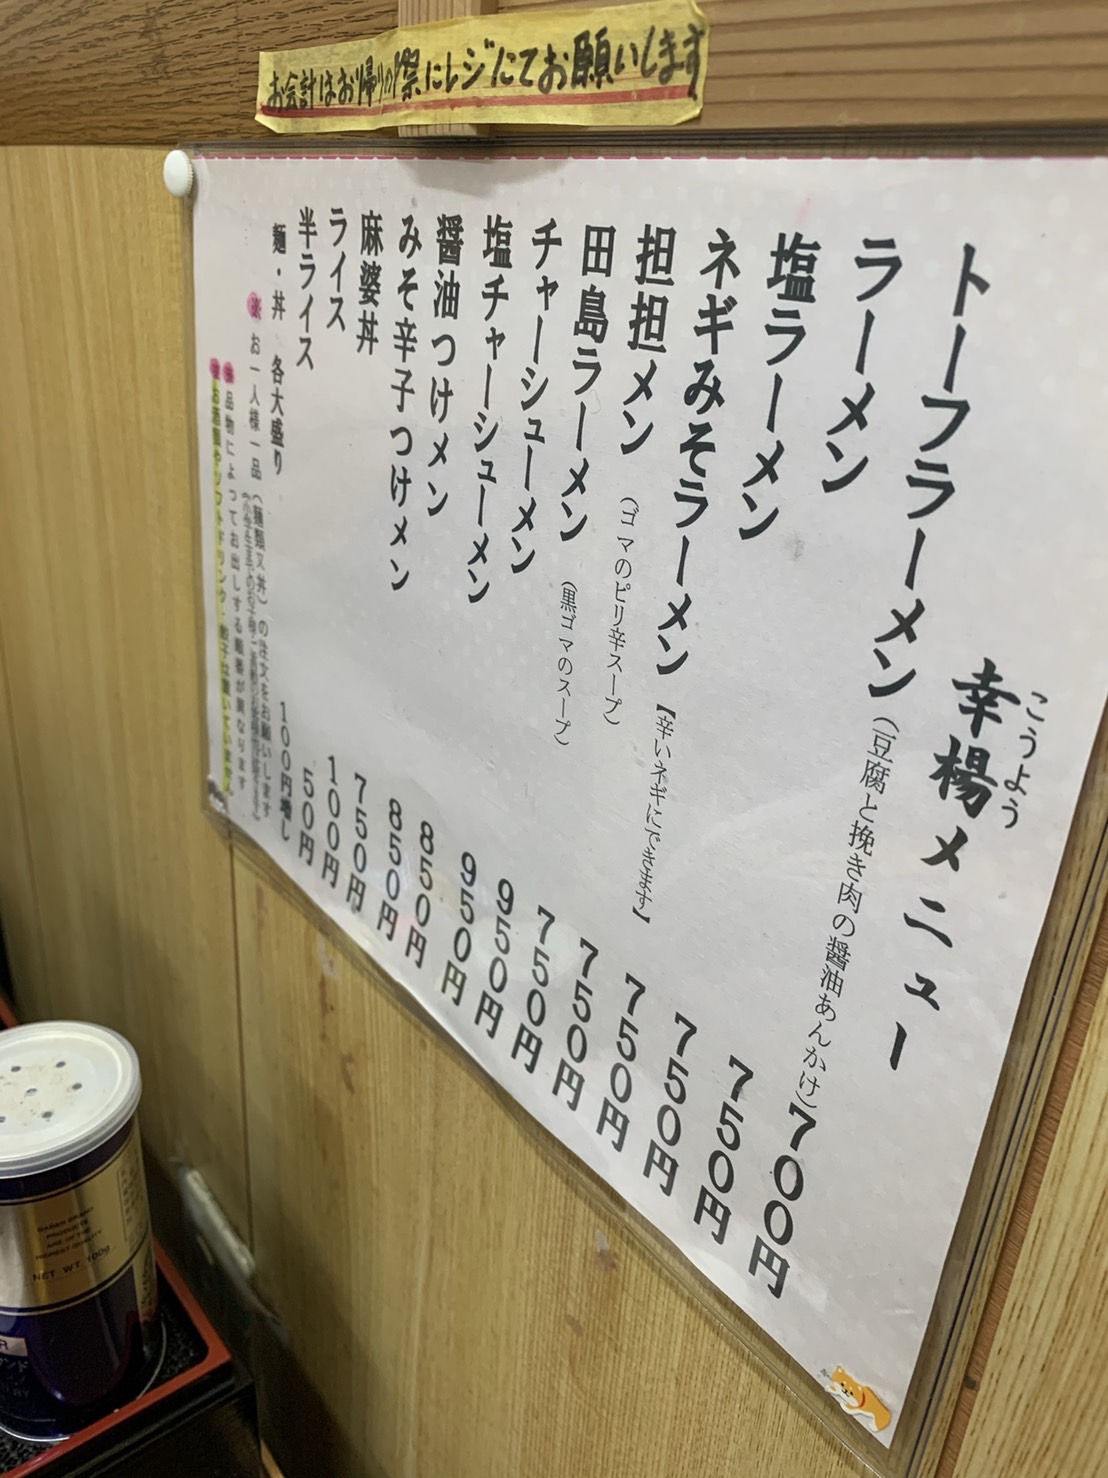 お会計はお帰りの際にレジにてお願いします
幸楊メニュー
こうよう
トーフラーメン（豆腐と挽き肉の醤油あんかけ）700円
ラーメン 750円
塩ラーメン 750円
ネギみそラーメン【辛いネギにできます】 750円
担担メン（ゴマのピリ辛スープ） 750円
田島ラーメン（黒ゴマのスープ） 750円
チャーシューメン 950円
塩チャーシューメン 950円
醤油つけメン 850円
みそ辛子つけメン 850円
麻婆丼 750円
ライス 100円
半ライス 50円
麺・丼 各大盛り 100円増し
※ お一人様一品（麺類又丼）の注文をお願いします
品物によってお出しする順番が異なります
お酒類やソフトドリンク、餃子は置いていません
NET WT. 100g